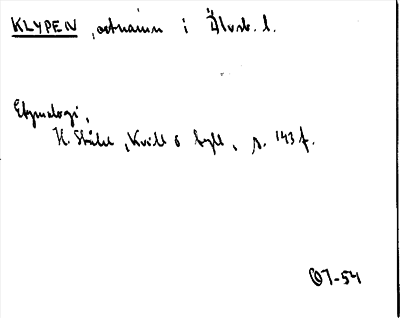 KLYPEN, ortnamn i Älvsb. l.
Etymologi,
H. Ståhl, Kvill o tyll, s. 143 f.
OT-54